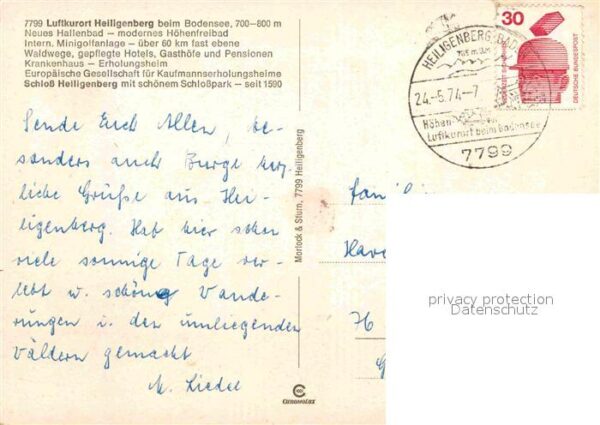 7799 Luftkurort Heiligenberg beim Bodensee, 700–800 m
Neues Hallenbad – modernes Höhenfreibad
Intern. Minigolfanlage – über 60 km fast ebene
Waldwege, gepflegte Hotels, Gasthöfe und Pensionen
Krankenhaus – Erholungsheim
Europäische Gesellschaft für Kaufmannserholungsheime
Schloß Heiligenberg mit schönem Schloßpark – seit 1590
Sende Euch Allen, be-
sonders auch Burge herz-
liche Grüße aus Hei-
ligenberg. Hab hier schon
viele sonnige Tage ver-
lebt u. schöne Wande-
rungen i. den umliegenden
Wäldern gemacht
M. Liedel
Morlock & Sturn, 7799 Heiligenberg
30
DEUTSCHE BUNDESPOST
HEILIGENBERG
24.-5.74-7
Höhen-
Luftkurort beim Bodensee
7799
Famil
Have
76
privacy protection
Datenschutz